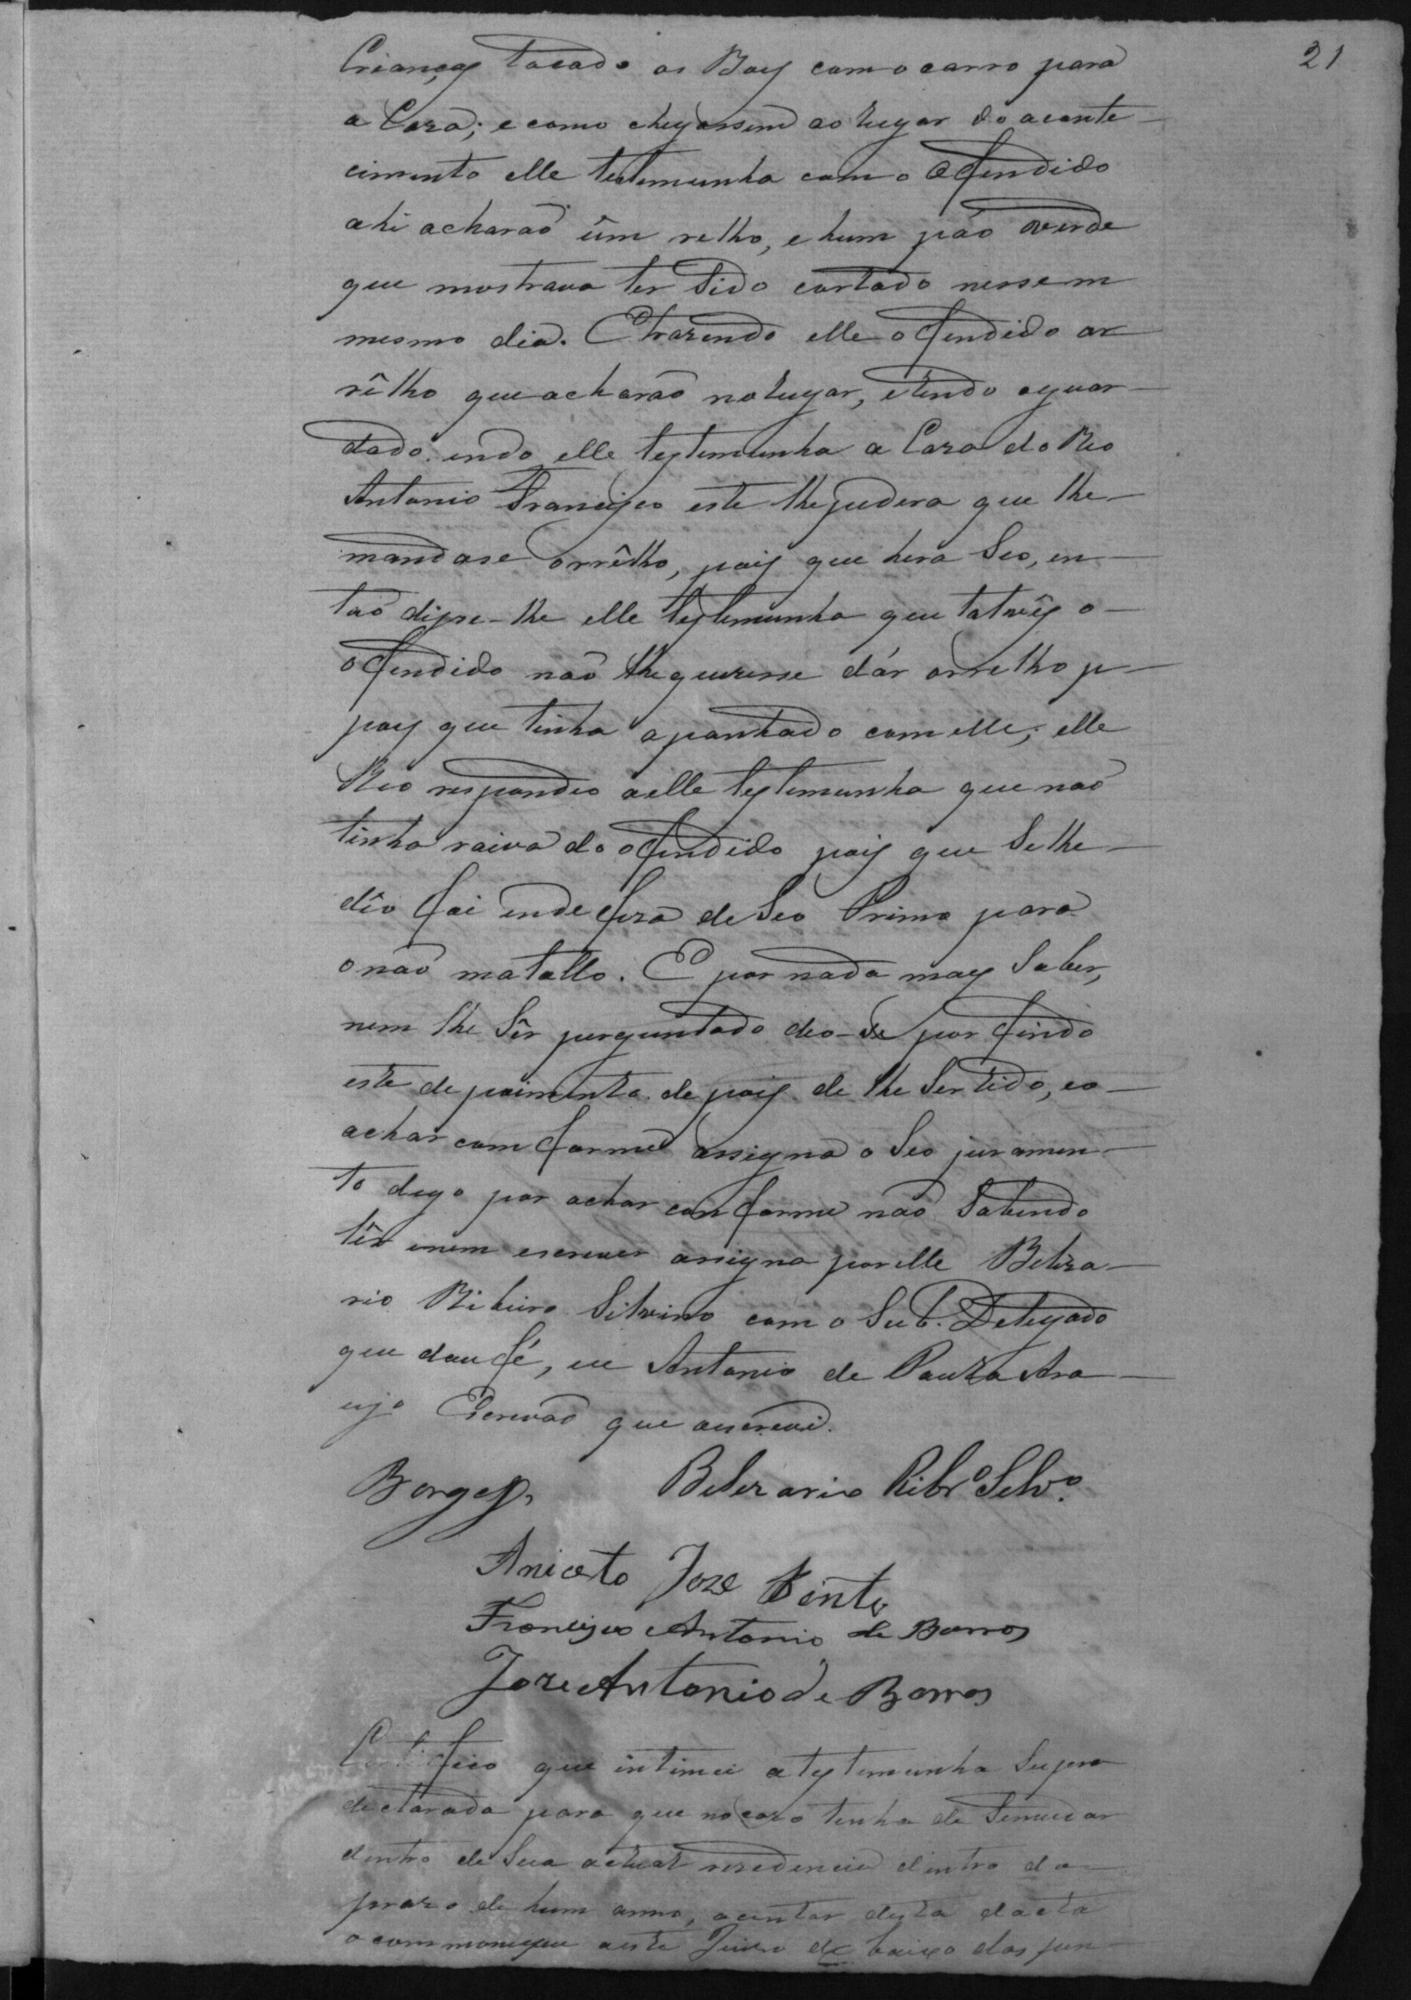 21
Crianças tocado os Boys com o carro para
a Caza; e como chegassem ao lugar do aconte-
cimento elle testemunha com o Offendido
ahi acharaõ ûm relho, e hum páo verde
que mostrava ter Sido cortado nesse m
mesmo dia. E trazendo elle offendido or
rêlho que acharaõ no lugar, e tendo aguar-
dado. indo elle testemunha a Caza do Reo
Antonio Francisco este lhe pedera que lhe
mandase orrêlho, pois que hera Seo, en-
taõ disse-lhe elle testemunha que talvês o
offendido naõ lhe quizesse dár orrelho p
pois que tinha apanhado com elle; elle
Reo respondeo a elle testemunha que naõ
tinha raiva do offendido pois que Se lhe
dêo foi em defeza de Seo Primo para
o naõ matallo. E por nada mais Saber,
nem lhe Sêr perguntado deo-se por findo
este depoimento. depois de lhe Ser lido, eo
achar comforme assigna o Seo juramen-
to digo por achar comforme naõ Sabendo
lêr e nem escrever assigna por elle Beliza-
rio Ribeiro Silvino com o Sub. Delegado
que dou fé, eu Antonio de Paula Ara-
ujo Escrivaõ que escrevi.
Borges Belizario Ribrº Selvº.
Aniceto Joze Bento
Francisco Antonio de Barros
Joze Antonio de Barros
Certifico que intimei a testemunha Supra
declarada para que no cazo tenha de Se mudar
dentro de Sua actual rezedencia dentro do
prazo de hum anno, a contar desta dacta
o commonique a este Juizo de baixo das pen-